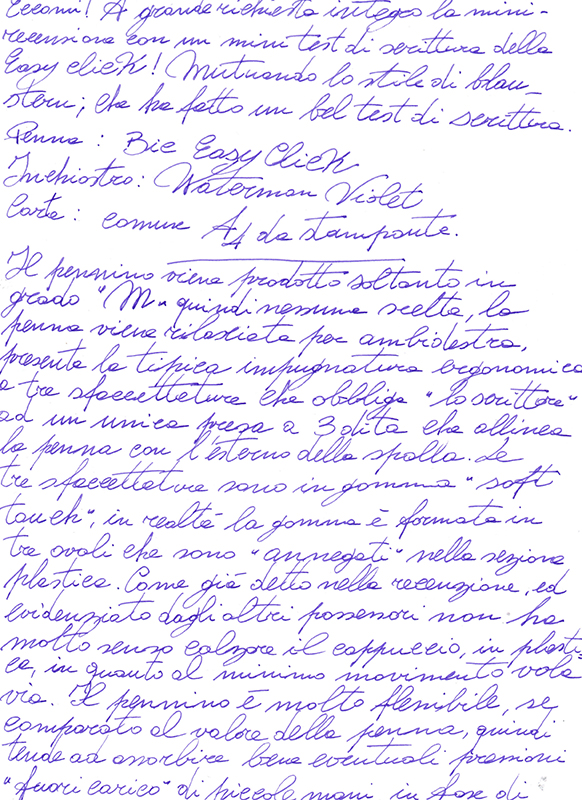 Eccomi! A grande richiesta integro la mini-
recensione con un mini test di scrittura della
Easy click! Mutuando lo stile di blau_
stern, che ha fatto un bel test di scrittura.
Penna : Bic Easy Click
Inchiostro: Waterman Violet
Carta : comune A4 da stampante.
Il pennino viene prodotto soltanto in
grado "M" quindi nessuna scelta, la
penna viene rilasciata per ambidestra,
presenta la tipica impugnatura ergonomica
a tre sfaccettature che obbliga "lo scrittore"
ad un unica presa a 3 dita che allinea
la penna con l'esterno della spalla. Le
tre sfaccettatura sono in gomma "soft
touch", in realtá la gomma é formata in
tre ovali che sono "annegati" nella sezione
plastica. Come giá detto nella recenzione, ed
evidenziato dagli altri possessori non ha
molto senso calzare il cappuccio, in plasti-
ca, in quanto al minimo movimento vola
via. Il pennino é molto flessibile, se
comparato al valore della penna, quindi
tende ad assorbire bene eventuali pressioni
"fuori carico" di piccole mani in fase di